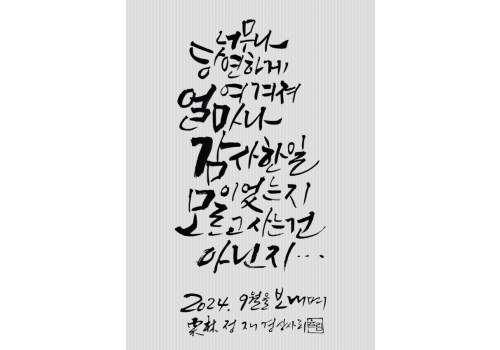 너무나
당연하게
여겨져
얼마나
감사한일
이었는지
모르고 사는건
아닌지...
2024. 9월을 보내며
林 정재경